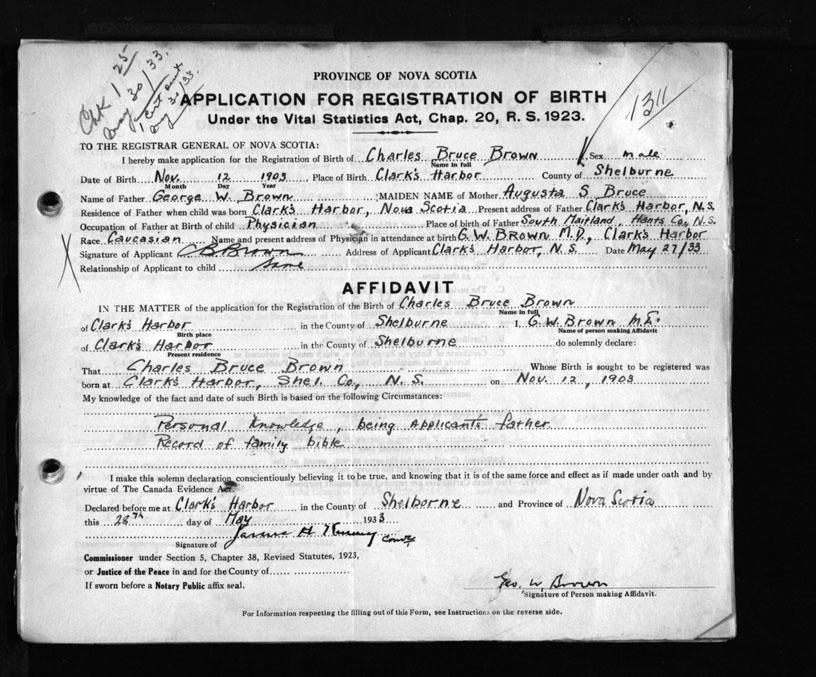 Chk 1 25
May 30/33.
1 Cert sent
May 30/33.
1311
PROVINCE OF NOVA SCOTIA
APPLICATION FOR REGISTRATION OF BIRTH
Under the Vital Statistics Act, Chap. 20, R. S. 1923.
TO THE REGISTRAR GENERAL OF NOVA SCOTIA:
I hereby make application for the Registration of Birth of Charles Bruce Brown Sex male
Name in full
Date of Birth Nov. 12 1903 Place of Birth Clark's Harbor County of Shelburne
Month Day Year
Name of Father George W. Brown MAIDEN NAME of Mother Augusta S. Bruce
Residence of Father when child was born Clark's Harbor, Nova Scotia Present address of Father Clark's Harbor, N.S.
Occupation of Father at Birth of child Physician Place of birth of Father South Maitland, Hants Co., N.S.
Race Caucasian Name and present address of Physician in attendance at birth G. W. Brown M.D., Clark's Harbor
Signature of Applicant C B Brown Address of Applicant Clark's Harbor, N.S. Date May 27/33
Relationship of Applicant to child
AFFIDAVIT
IN THE MATTER of the application for the Registration of the Birth of Charles Bruce Brown
Name in full
of Clark's Harbor in the County of Shelburne I, G. W. Brown M.D.
Birth place Name of person making Affidavit
of Clark's Harbor in the County of Shelburne do solemnly declare:
Present residence
That Charles Bruce Brown Whose Birth is sought to be registered was
born at Clark's Harbor, Shel. Co., N. S. on Nov. 12, 1903
My knowledge of the fact and date of such Birth is based on the following Circumstances:
Personal knowledge, being Applicant's father
Record of family bible
I make this solemn declaration conscientiously believing it to be true, and knowing that it is of the same force and effect as if made under oath and by
virtue of The Canada Evidence Act.
Declared before me at Clark's Harbor in the County of Shelborne and Province of Nova Scotia
this 28th day of May 1933
Signature of
Commissioner under Section 5, Chapter 38, Revised Statutes, 1923,
or Justice of the Peace in and for the County of
If sworn before a Notary Public affix seal.
Geo. W. Brown
Signature of Person making Affidavit.
For Information respecting the filling out of this Form, see Instructions on the reverse side.